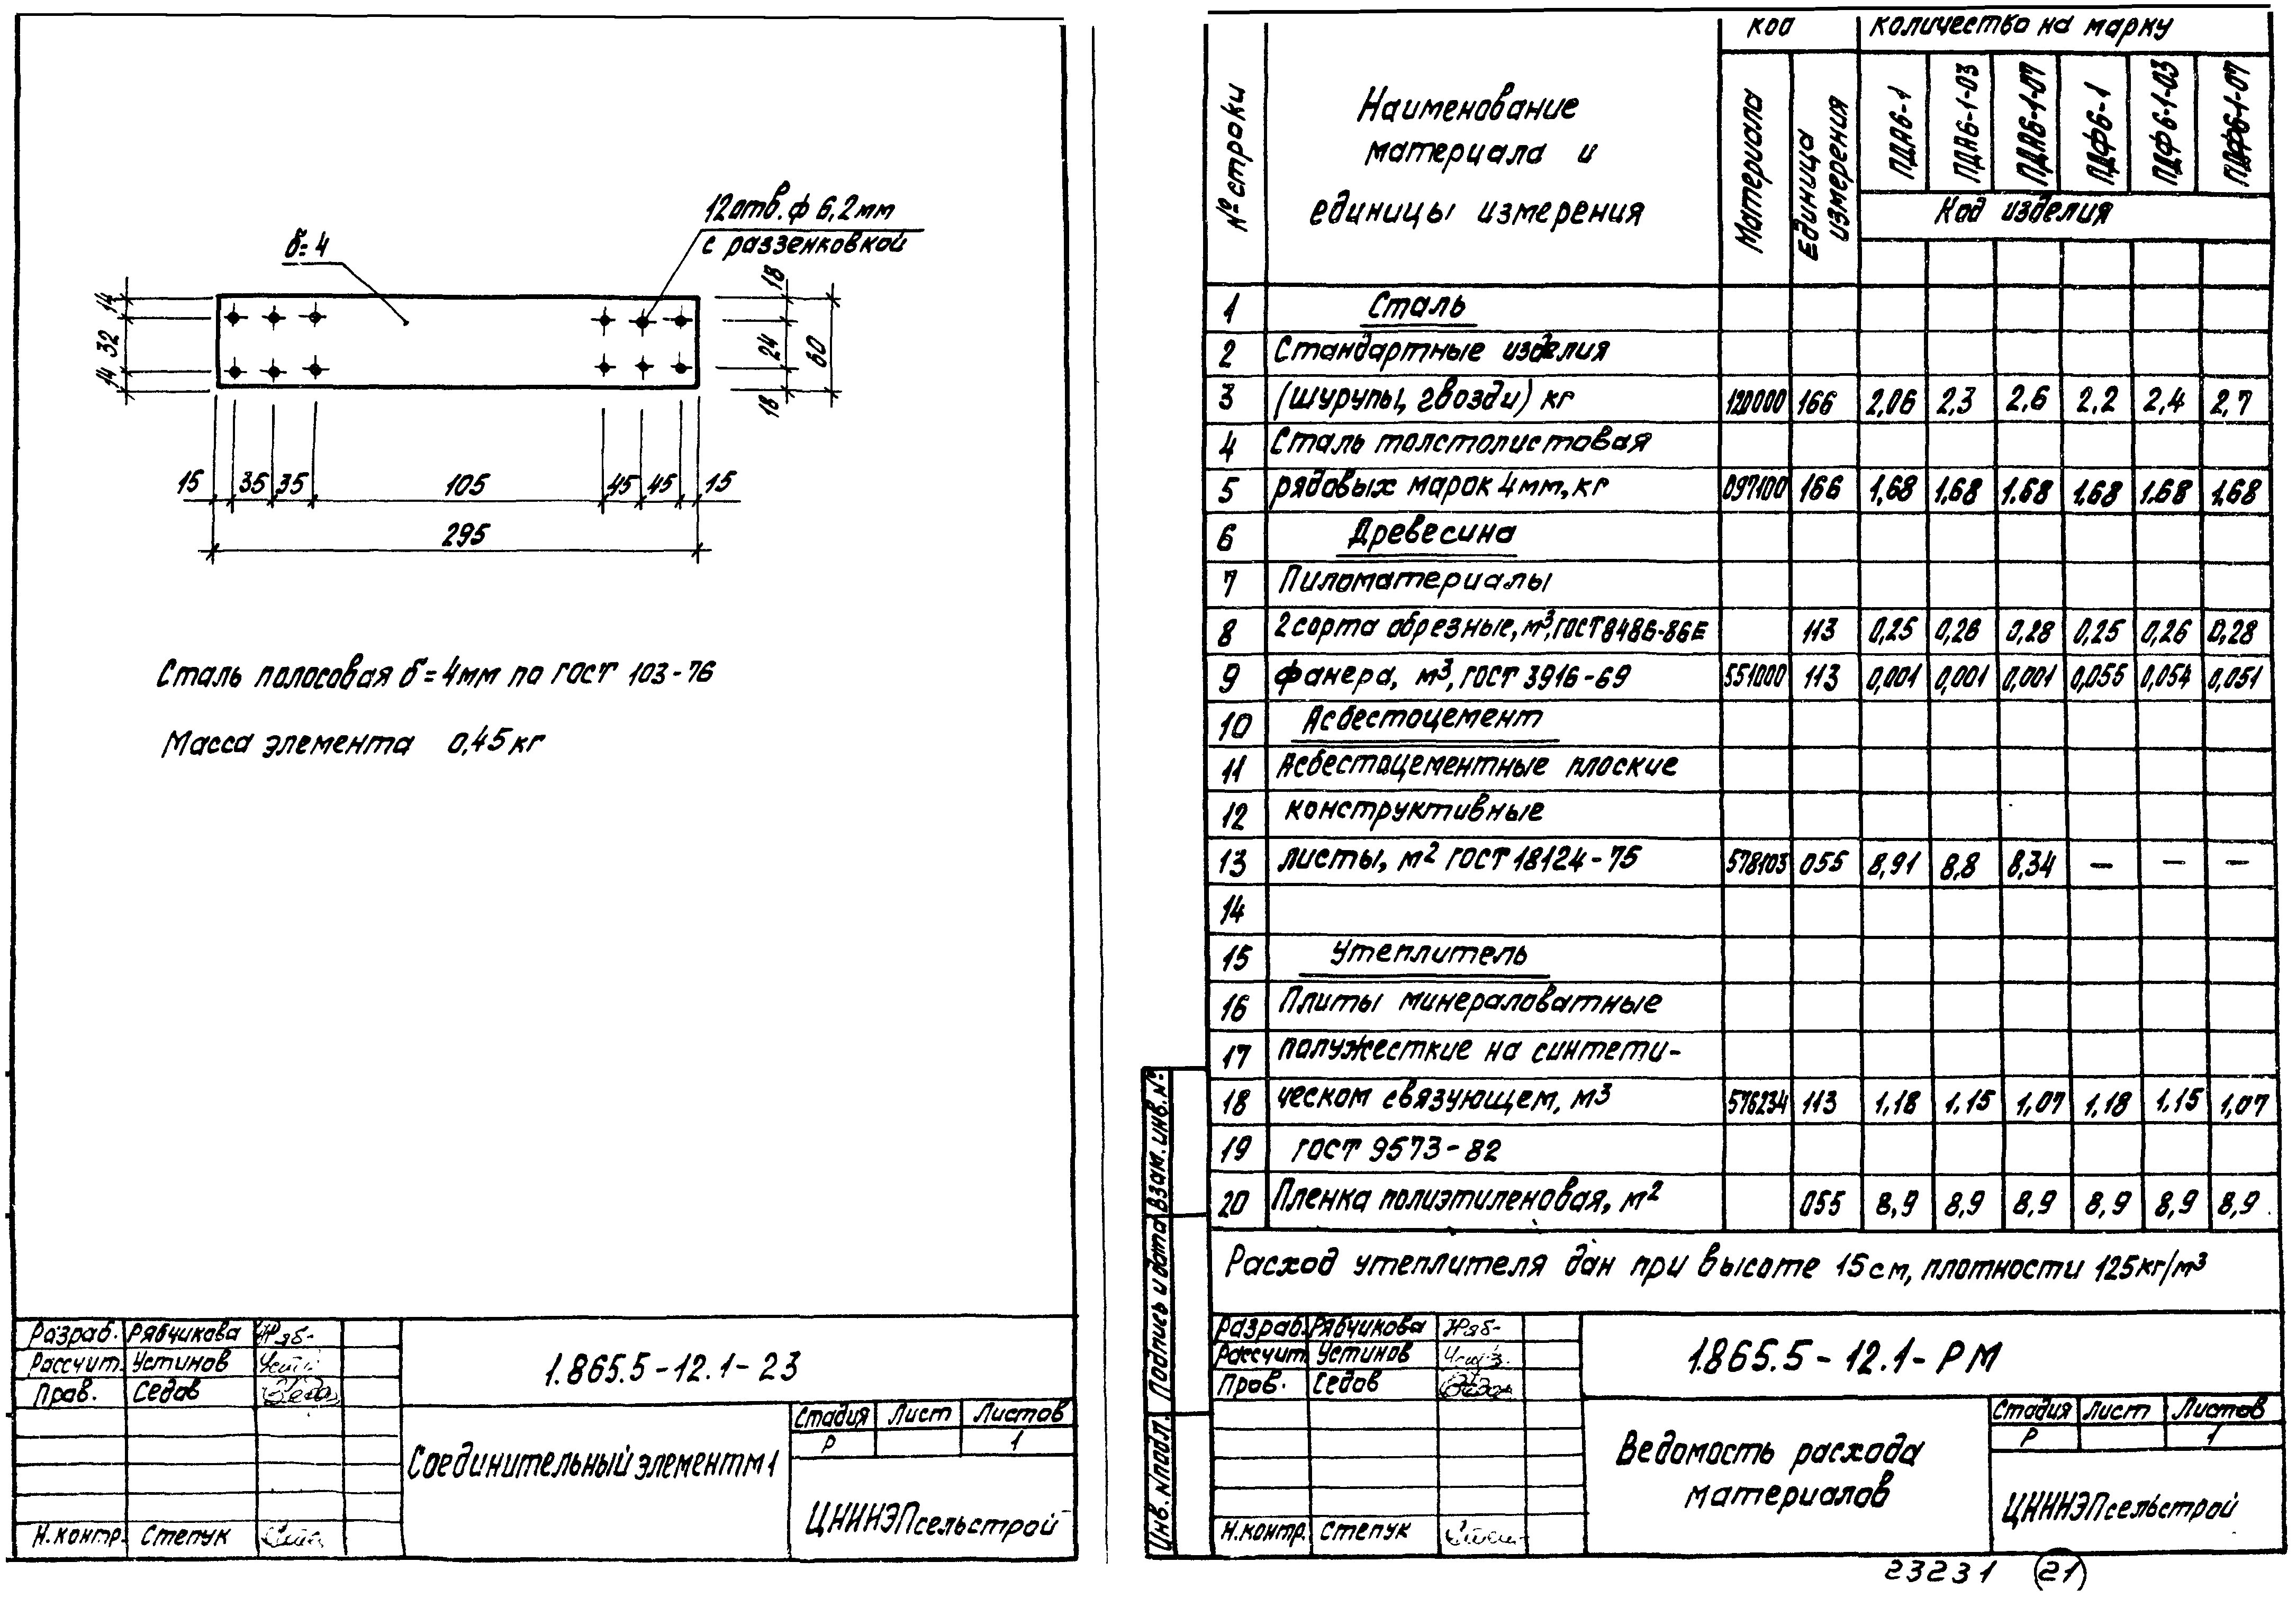 12отв. ф 6,2мм
с раззенковкой
δ=4
14
32
14
18
24
18
60
15 35 35 105 45 45 15
295
Сталь полосовая δ=4мм по ГОСТ 103-76
Масса элемента 0,45кг
Разраб. Рябчикова
Рассчит. Устинов
Пров. Седов
Н.контр. Степук
1.865.5-12.1-23
Соединительный элемент м1
Стадия Лист Листов
Р 1
ЦНИИЭПсельстрой
№ строки Наименование материала и единицы измерения код количество на марку
Материала Единица измерения ПДА6-1 ПДА6-1-03 ПДА6-1-07 ПДФ6-1 ПДФ6-1-03 ПДФ6-1-07
Код изделия
1 Сталь
2 Стандартные изделия
3 (шурупы, гвозди) кг 120000 166 2,06 2,3 2,6 2,2 2,4 2,7
4 Сталь толстолистовая
5 рядовых марок 4мм, кг 097100 166 1,68 1,68 1.68 1,68 1.68 1,68
6 Древесина
7 Пиломатериалы
8 2 сорта обрезные, м3, ГОСТ 8486-86Е 113 0,25 0,26 0,28 0,25 0,26 0,28
9 фанера, м3, ГОСТ 3916-69 551000 113 0,001 0,001 0,001 0,055 0,054 0,051
10 Асбестоцемент
11 Асбестоцементные плоские
12 конструктивные
13 листы, м2 ГОСТ 18124-75 578103 055 8,91 8,8 8,34 — — —
14
15 Утеплитель
16 Плиты минераловатные
17 полужесткие на синтети-
18 ческом связующем, м3 576234 113 1,18 1.15 1,07 1.18 1.15 1,07
19 ГОСТ 9573-82
20 Пленка полиэтиленовая, м2 055 8,9 8,9 8,9 8,9 8,9 8,9
Расход утеплителя дан при высоте 15см, плотности 125кг/м3
Инв. № подл. Подпись и дата Взам. инв. №
Разраб. Рябчикова
Рассчит. Устинов
Пров. Седов
Н.контр. Степук
1.865.5-12.1-РМ
Ведомость расхода
материалов
Стадия Лист Листов
Р 1
ЦНИИЭПсельстрой
23231 21